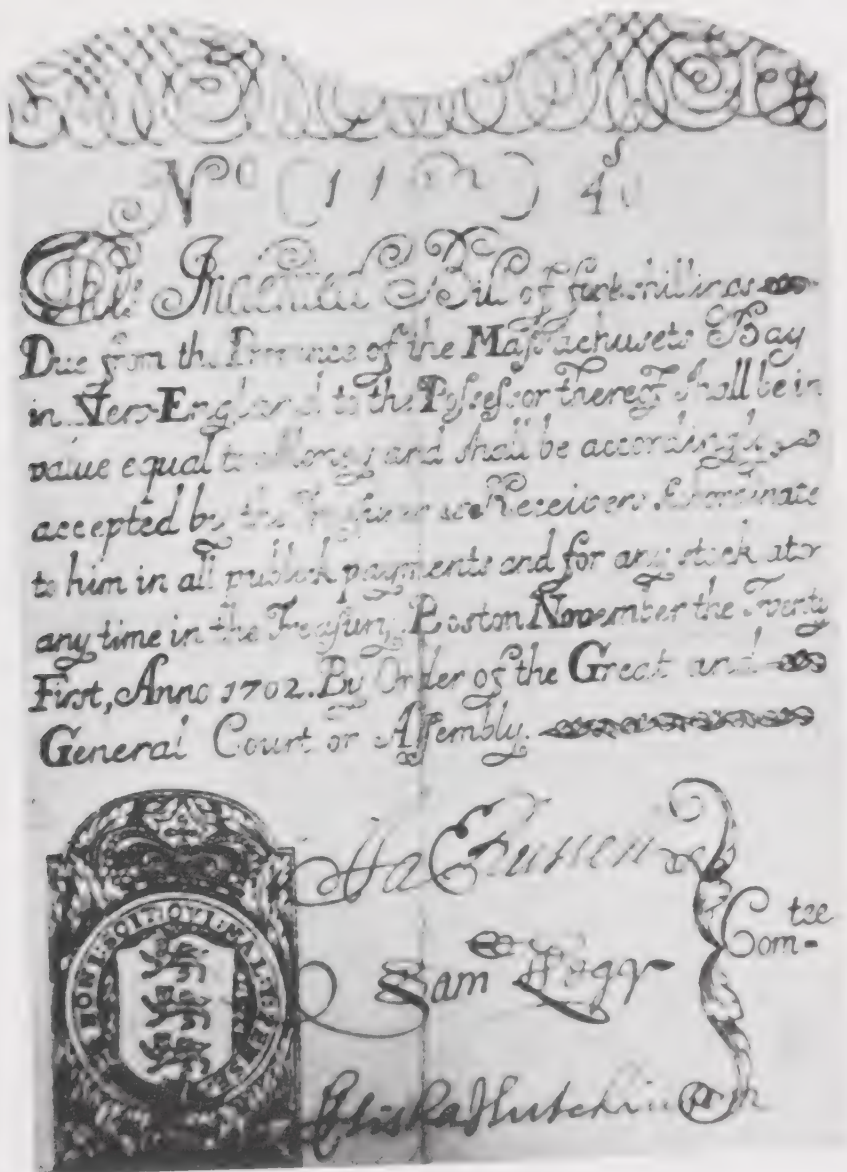 No (11 ) 40s
This Indented Bill of forty shillings
Due from the Province of the Massachusets Bay
in New-England to the Possessor thereof shall be in
value equal to Money and shall be accordingly
accepted by the Treasurer Receivers subordinate
to him in all publick payments and for any stock at
any time in the Treasury. Boston November the Twenty
First, Anno 1702. By Order of the Great and
General Court or Assembly.
HONI SOIT QUI MAL Y PENSE
Sam
Com-tee
Elisha Hutchinson